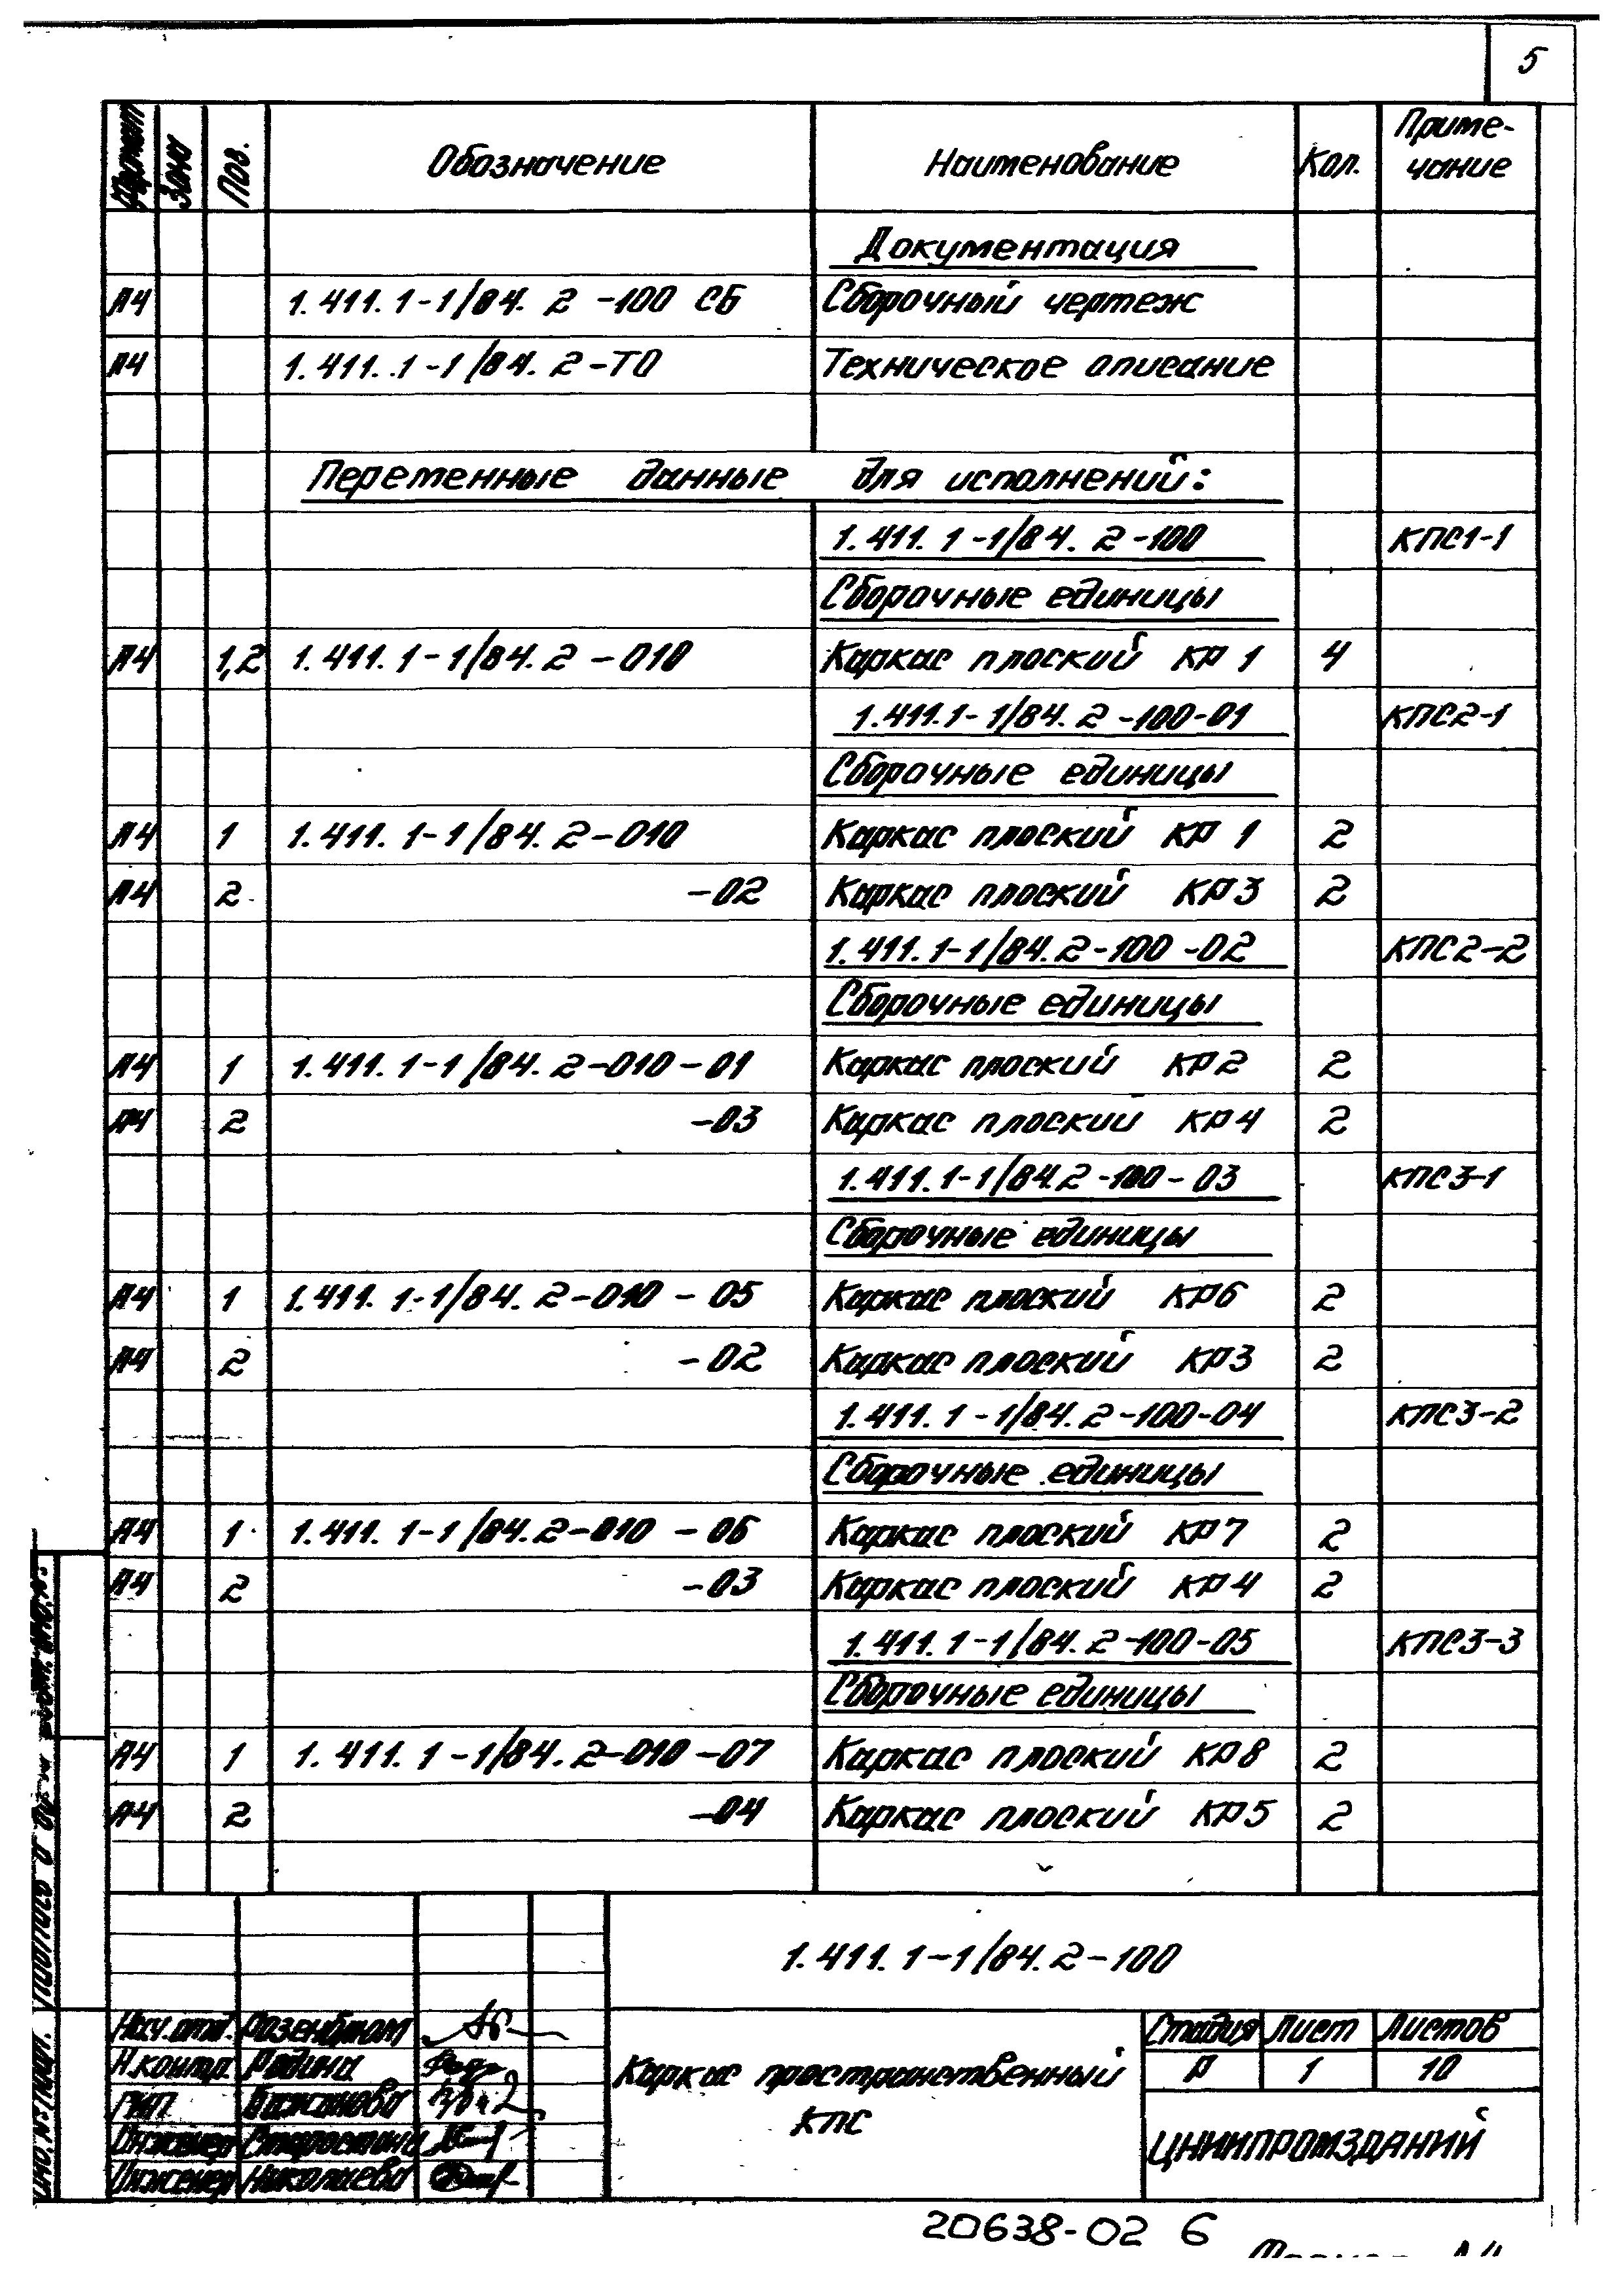 5
Формат Зона Поз. Обозначение Наименование Кол. Приме-
чание
Документация
А4 1.411.1-1/84.2-100 СБ Сборочный чертеж
А4 1.411.1-1/84.2-ТО Техническое описание
Переменные данные для исполнений:
1.411.1-1/84.2-100 КПС1-1
Сборочные единицы
А4 1,2 1.411.1-1/84.2-010 Каркас плоский КР1 4
1.411.1-1/84.2-100-01 КПС2-1
Сборочные единицы
А4 1 1.411.1-1/84.2-010 Каркас плоский КР1 2
А4 2 -02 Каркас плоский КР3 2
1.411.1-1/84.2-100-02 КПС2-2
Сборочные единицы
А4 1 1.411.1-1/84.2-010-01 Каркас плоский КР2 2
А4 2 -03 Каркас плоский КР4 2
1.411.1-1/84.2-100-03 КПС3-1
Сборочные единицы
А4 1 1.411.1-1/84.2-010-05 Каркас плоский КР6 2
А4 2 -02 Каркас плоский КР3 2
1.411.1-1/84.2-100-04 КПС3-2
Сборочные единицы
А4 1 1.411.1-1/84.2-010-06 Каркас плоский КР7 2
А4 2 -03 Каркас плоский КР4 2
1.411.1-1/84.2-100-05 КПС3-3
Сборочные единицы
А4 1 1.411.1-1/84.2-010-07 Каркас плоский КР8 2
А4 2 -04 Каркас плоский КР5 2
1.411.1-1/84.2-100
Нач. отд. Розенблюм
Н.контр. Родина
ГИП
Инженер
Инженер Николаева
Каркас пространственный
КПС
Стадия Лист Листов
Р 1 10
ЦНИИПРОМЗДАНИЙ
Инв.№ подл. Подпись и дата Взам. инв.№
20638-02 6
Формат А4